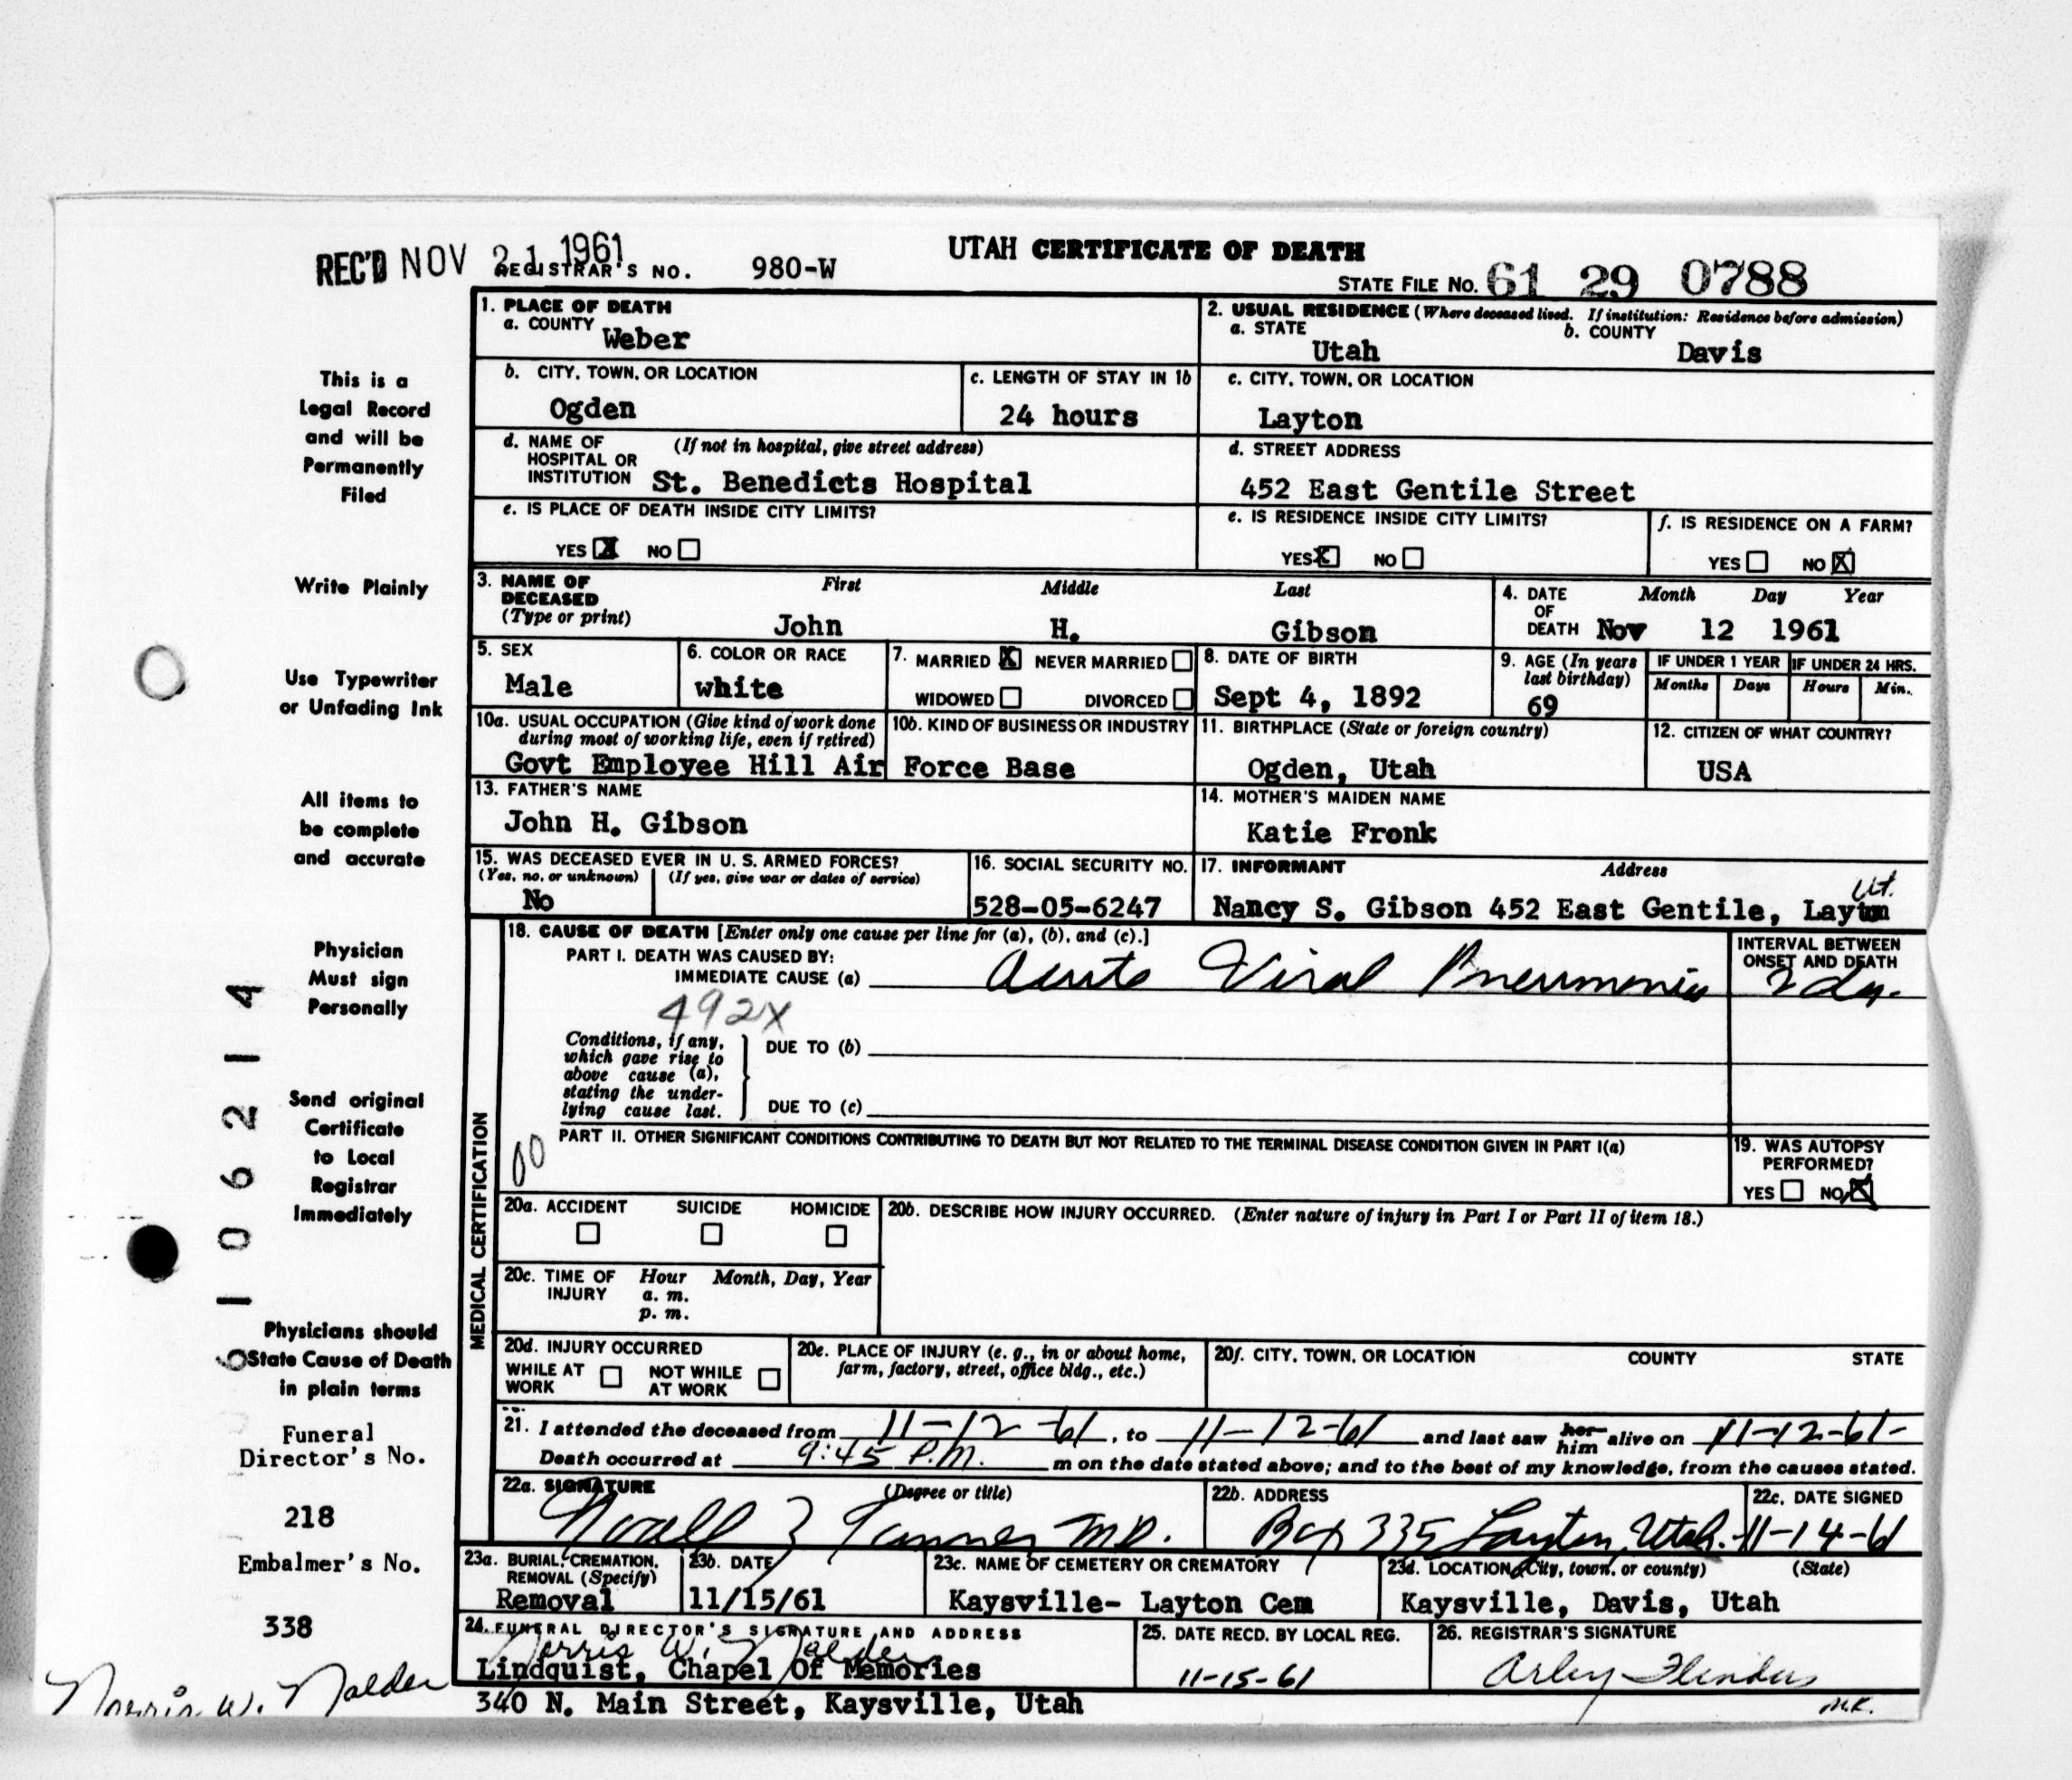 REC'D NOV 21 1961
REGISTRAR'S NO. 980-W
UTAH CERTIFICATE OF DEATH
STATE FILE No. 61 29 0788
This is a
Legal Record
and will be
Permanently
Filed
Write Plainly
Use Typewriter
or Unfading Ink
All items to
be complete
and accurate
Physician
Must sign
Personally
Send original
Certificate
to Local
Registrar
Immediately
Physicians should
State Cause of Death
in plain terms
Funeral
Director's No.
218
Embalmer's No.
338
Norris W. Nalder
6 1 0 6 2 1 4
1. PLACE OF DEATH
a. COUNTY Weber
2. USUAL RESIDENCE (Where deceased lived. If institution: Residence before admission)
a. STATE Utah b. COUNTY Davis
b. CITY, TOWN, OR LOCATION Ogden
c. LENGTH OF STAY IN 1b 24 hours
c. CITY, TOWN, OR LOCATION Layton
d. NAME OF HOSPITAL OR INSTITUTION (If not in hospital, give street address) St. Benedicts Hospital
d. STREET ADDRESS 452 East Gentile Street
e. IS PLACE OF DEATH INSIDE CITY LIMITS?
YES X NO
e. IS RESIDENCE INSIDE CITY LIMITS?
YES X NO
f. IS RESIDENCE ON A FARM?
YES NO X
3. NAME OF DECEASED (Type or print)
First Middle Last
John H. Gibson
4. DATE OF DEATH Month Day Year
Nov 12 1961
5. SEX Male
6. COLOR OR RACE white
7. MARRIED X NEVER MARRIED
WIDOWED DIVORCED
8. DATE OF BIRTH Sept 4, 1892
9. AGE (In years last birthday) 69
IF UNDER 1 YEAR Months Days
IF UNDER 24 HRS. Hours Min.
10a. USUAL OCCUPATION (Give kind of work done during most of working life, even if retired)
10b. KIND OF BUSINESS OR INDUSTRY
Govt Employee Hill Air Force Base
11. BIRTHPLACE (State or foreign country) Ogden, Utah
12. CITIZEN OF WHAT COUNTRY? USA
13. FATHER'S NAME John H. Gibson
14. MOTHER'S MAIDEN NAME Katie Fronk
15. WAS DECEASED EVER IN U. S. ARMED FORCES?
(Yes, no, or unknown) (If yes, give war or dates of service)
No
16. SOCIAL SECURITY NO. 528-05-6247
17. INFORMANT Address
Nancy S. Gibson 452 East Gentile, Layton Ut.
MEDICAL CERTIFICATION
18. CAUSE OF DEATH [Enter only one cause per line for (a), (b), and (c).]
PART I. DEATH WAS CAUSED BY:
IMMEDIATE CAUSE (a) Acute Viral Pneumonia
INTERVAL BETWEEN ONSET AND DEATH
2 dy.
492X
Conditions, if any, which gave rise to above cause (a), stating the underlying cause last.
DUE TO (b)
DUE TO (c)
PART II. OTHER SIGNIFICANT CONDITIONS CONTRIBUTING TO DEATH BUT NOT RELATED TO THE TERMINAL DISEASE CONDITION GIVEN IN PART I(a)
00
19. WAS AUTOPSY PERFORMED?
YES NO X
20a. ACCIDENT SUICIDE HOMICIDE
20b. DESCRIBE HOW INJURY OCCURRED. (Enter nature of injury in Part I or Part II of item 18.)
20c. TIME OF INJURY Hour Month, Day, Year
a. m.
p. m.
20d. INJURY OCCURRED
WHILE AT WORK NOT WHILE AT WORK
20e. PLACE OF INJURY (e. g., in or about home, farm, factory, street, office bldg., etc.)
20f. CITY, TOWN, OR LOCATION COUNTY STATE
21. I attended the deceased from 11-12-61, to 11-12-61 and last saw her him alive on 11-12-61
Death occurred at 9:45 P.M. m on the date stated above; and to the best of my knowledge, from the causes stated.
22a. SIGNATURE (Degree or title)
Noall Z Tanner M.D.
22b. ADDRESS
Box 335 Layton, Utah.
22c. DATE SIGNED
11-14-61
23a. BURIAL, CREMATION, REMOVAL (Specify) Removal
23b. DATE 11/15/61
23c. NAME OF CEMETERY OR CREMATORY Kaysville- Layton Cem
23d. LOCATION (City, town, or county) (State)
Kaysville, Davis, Utah
24. FUNERAL DIRECTOR'S SIGNATURE AND ADDRESS
Norris W. Nalder
Lindquist, Chapel Of Memories
340 N. Main Street, Kaysville, Utah
25. DATE RECD. BY LOCAL REG.
11-15-61
26. REGISTRAR'S SIGNATURE
Arley Flinders
M.K.